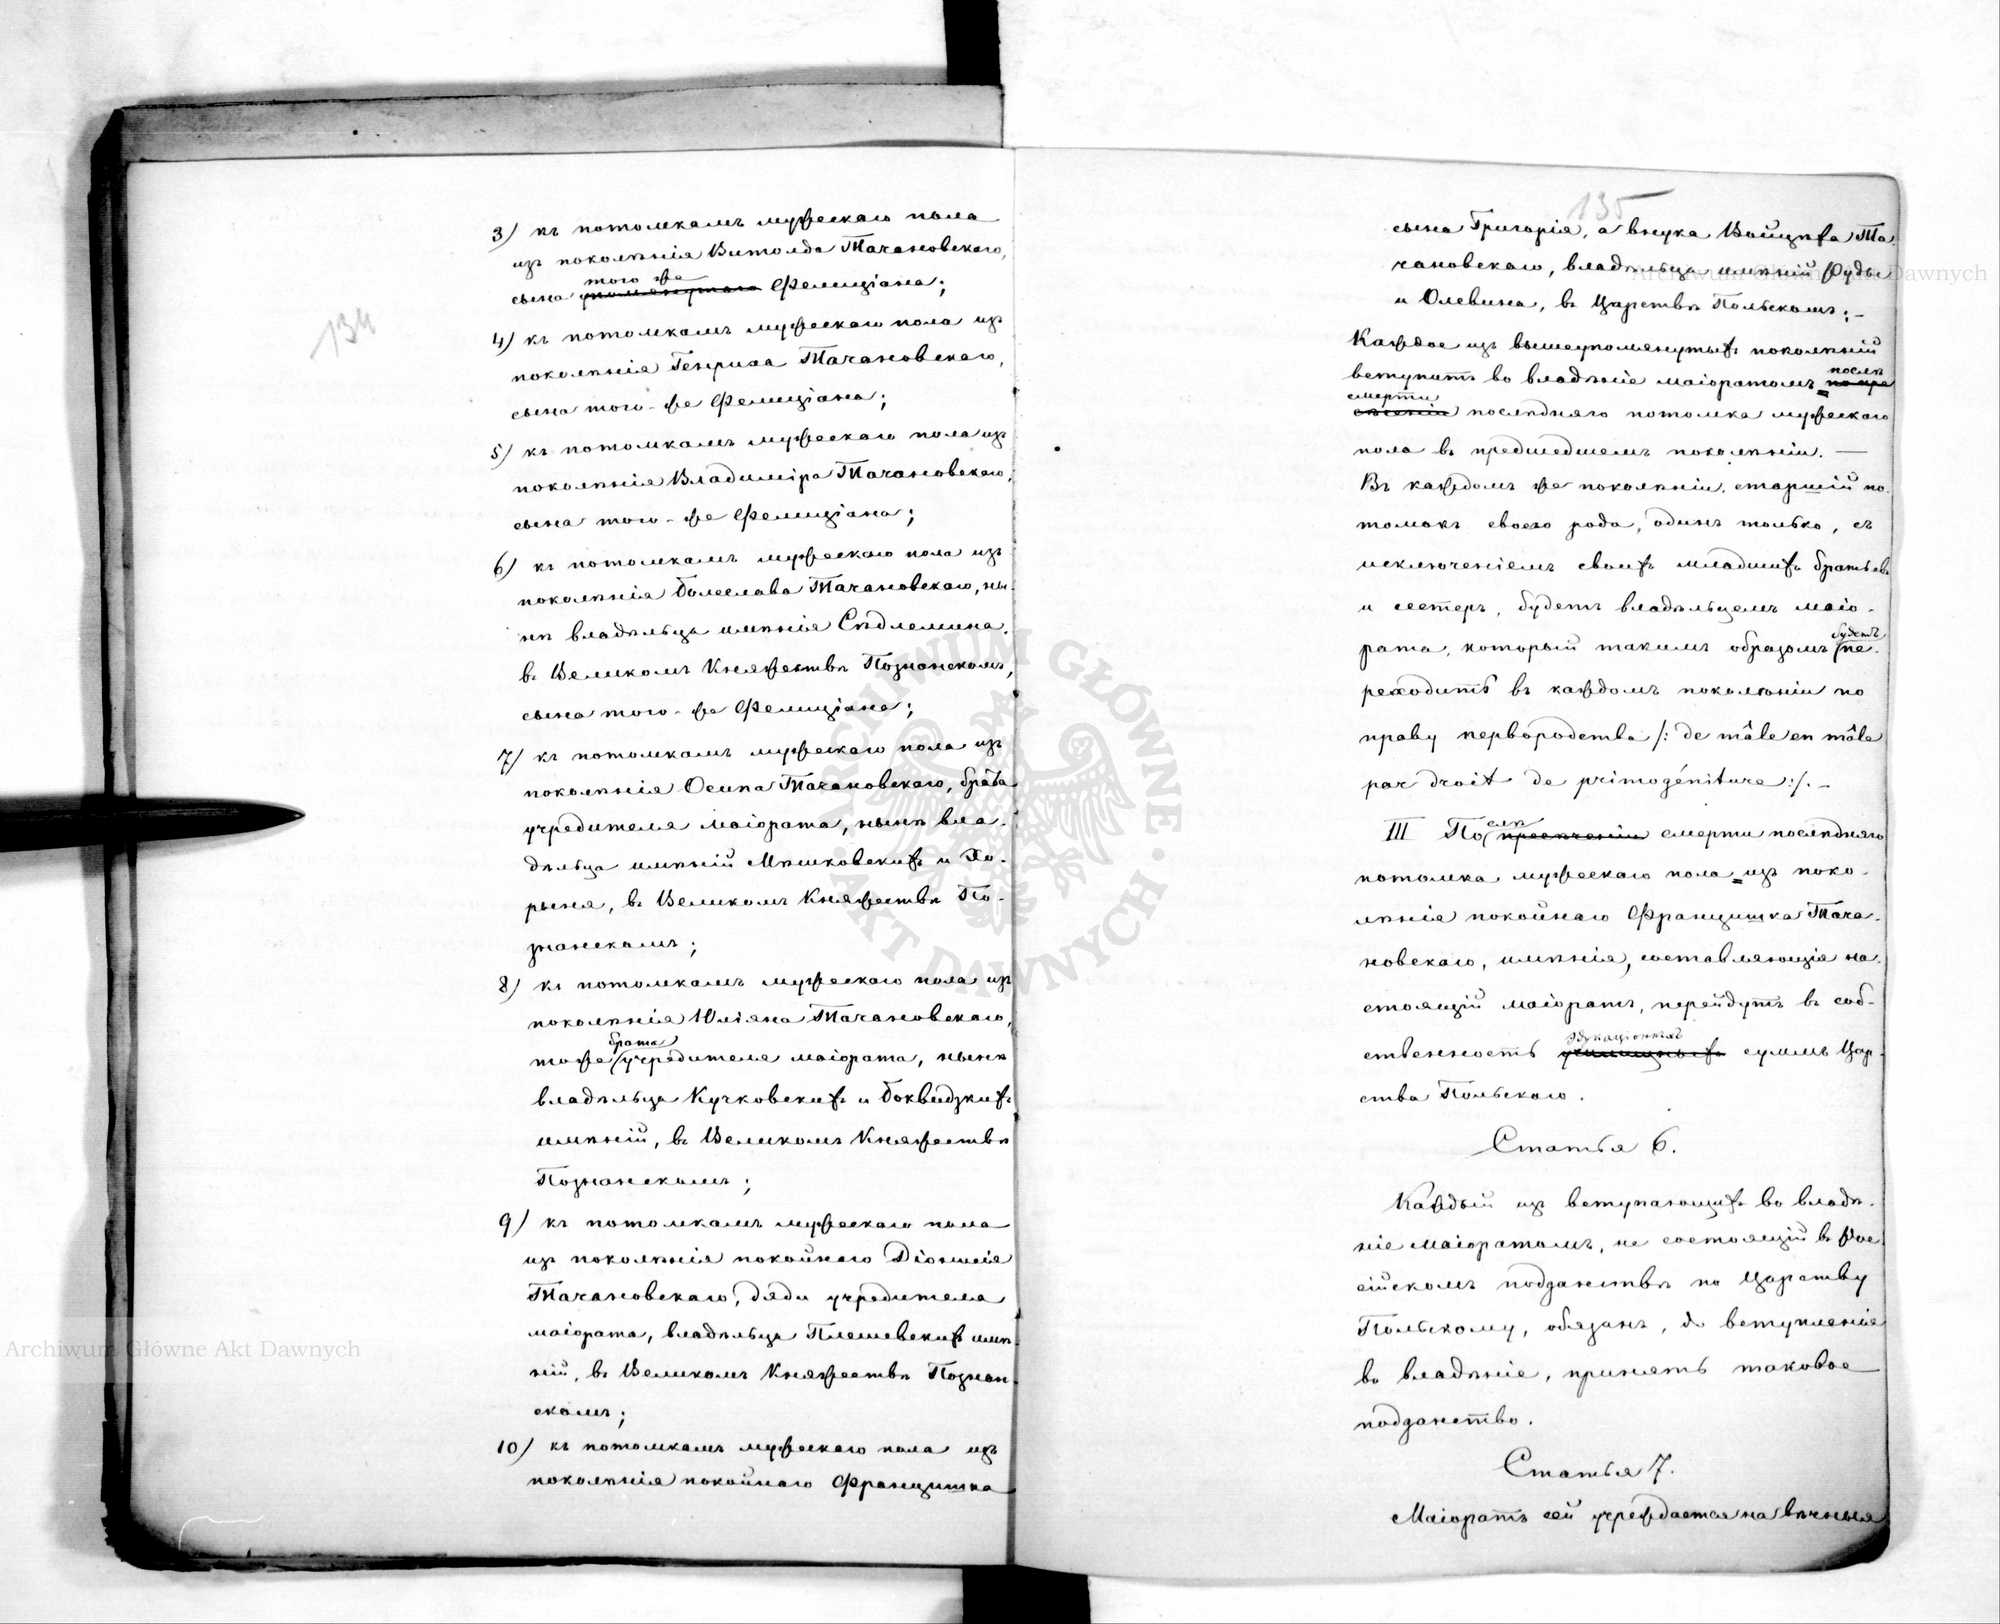 134
3) къ потомкамъ мужескаго пола
изъ поколѣнія Витолда Тачановскаго,
того же
сына упомянутаго Фелиціана;
4) къ потомкамъ мужескаго пола изъ
поколѣнія Генриха Тачановскаго,
сына того-же Фелиціана;
5) къ потомкамъ мужескаго пола изъ
поколѣнія Владиміра Тачановскаго,
сына того-же Фелиціана;
6) къ потомкамъ мужескаго пола изъ
поколѣнія Болеслава Тачановскаго, ны-
нѣ владѣльца имѣнія Сѣдлемина,
въ Великомъ Княжествѣ Познанскомъ,
сына того-же Фелиціана;
7) къ потомкамъ мужескаго пола изъ
поколѣнія Осипа Тачановскаго, брата
учредителя маіората, нынѣ вла-
дѣльца имѣній Мѣшковскихъ и Хо-
рыня, въ Великомъ Княжествѣ По-
знанскомъ;
8) къ потомкамъ мужескаго пола изъ
поколѣнія Юліяна Тачановскаго,
брата
тоже учредителя маіората, нынѣ
владѣльца Кучковскихъ и Боквидзкихъ
имѣній, въ Великомъ Княжествѣ
Познанскомъ;
9) къ потомкамъ мужескаго пола
изъ поколѣнія покойнаго Діонисія
Тачановскаго, дяди учредителя
маіората, владѣльца Плешевскихъ имѣ-
ній, въ Великомъ Княжествѣ Познан-
скомъ;
10) къ потомкамъ мужескаго пола изъ
поколѣнія покойнаго Францишка
135
сына Григорія, а внука Войцѣха Та-
чановскаго, владѣльца имѣній Руды
и Олевина, въ Царствѣ Польскомъ;-
Каждое изъ вышеупомянутыхъ поколѣній
послѣ
вступитъ во владѣніе маіоратомъ по пре
смерти
сѣченіи послѣдняго потомка мужескаго
пола въ предшедшемъ поколѣніи. —
Въ каждомъ же поколѣніи, старшій по-
томокъ своего рода, одинъ только, съ
исключеніемъ своихъ младшихъ братьевъ
и сестеръ, будетъ владѣльцемъ маіо-
будетъ
рата, который такимъ образомъ пе-
реходить въ каждомъ поколѣніи по
праву первородства /: de mâle en mâle
par droit de primogéniture :/. –
слѣ
III По пресѣченіи смерти послѣдняго
потомка мужескаго пола изъ поко-
лѣнія покойнаго Францишка Тача-
новскаго, имѣнія, составляющія на-
стоящій маіоратъ, перейдутъ въ соб-
эдукаціонныхъ
ственность училищныхъ суммъ Цар-
ства Польскаго.
Статья 6.
Каждый изъ вступающихъ во владѣ-
ніе маіоратомъ, не состоящій въ Рос-
сійскомъ подданствѣ по Царству
Польскому, обязанъ, до вступленія
во владѣніе, принять таковое
подданство.
Статья 7.
Маіоратъ сей учреждается на вѣчныя
Archiwum Główne Akt Dawnych
Archiwum Główne Akt Dawnych
ARCHIWUM GŁÓWNE · AKT DAWNYCH ·